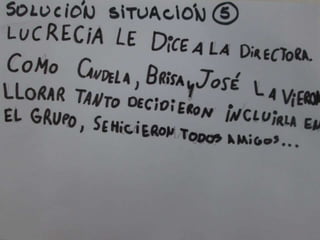 SOLUCIÓN SITUACIÓN 5
LUCRECIA LE DICE A LA DIRECTORA.
COMO CANDELA, BRISA y JOSÉ LA VIERON
LLORAR TANTO DECIDIERON INCLUIRLA EN
EL GRUPO, SE HICIERON TODOS AMIGOS...